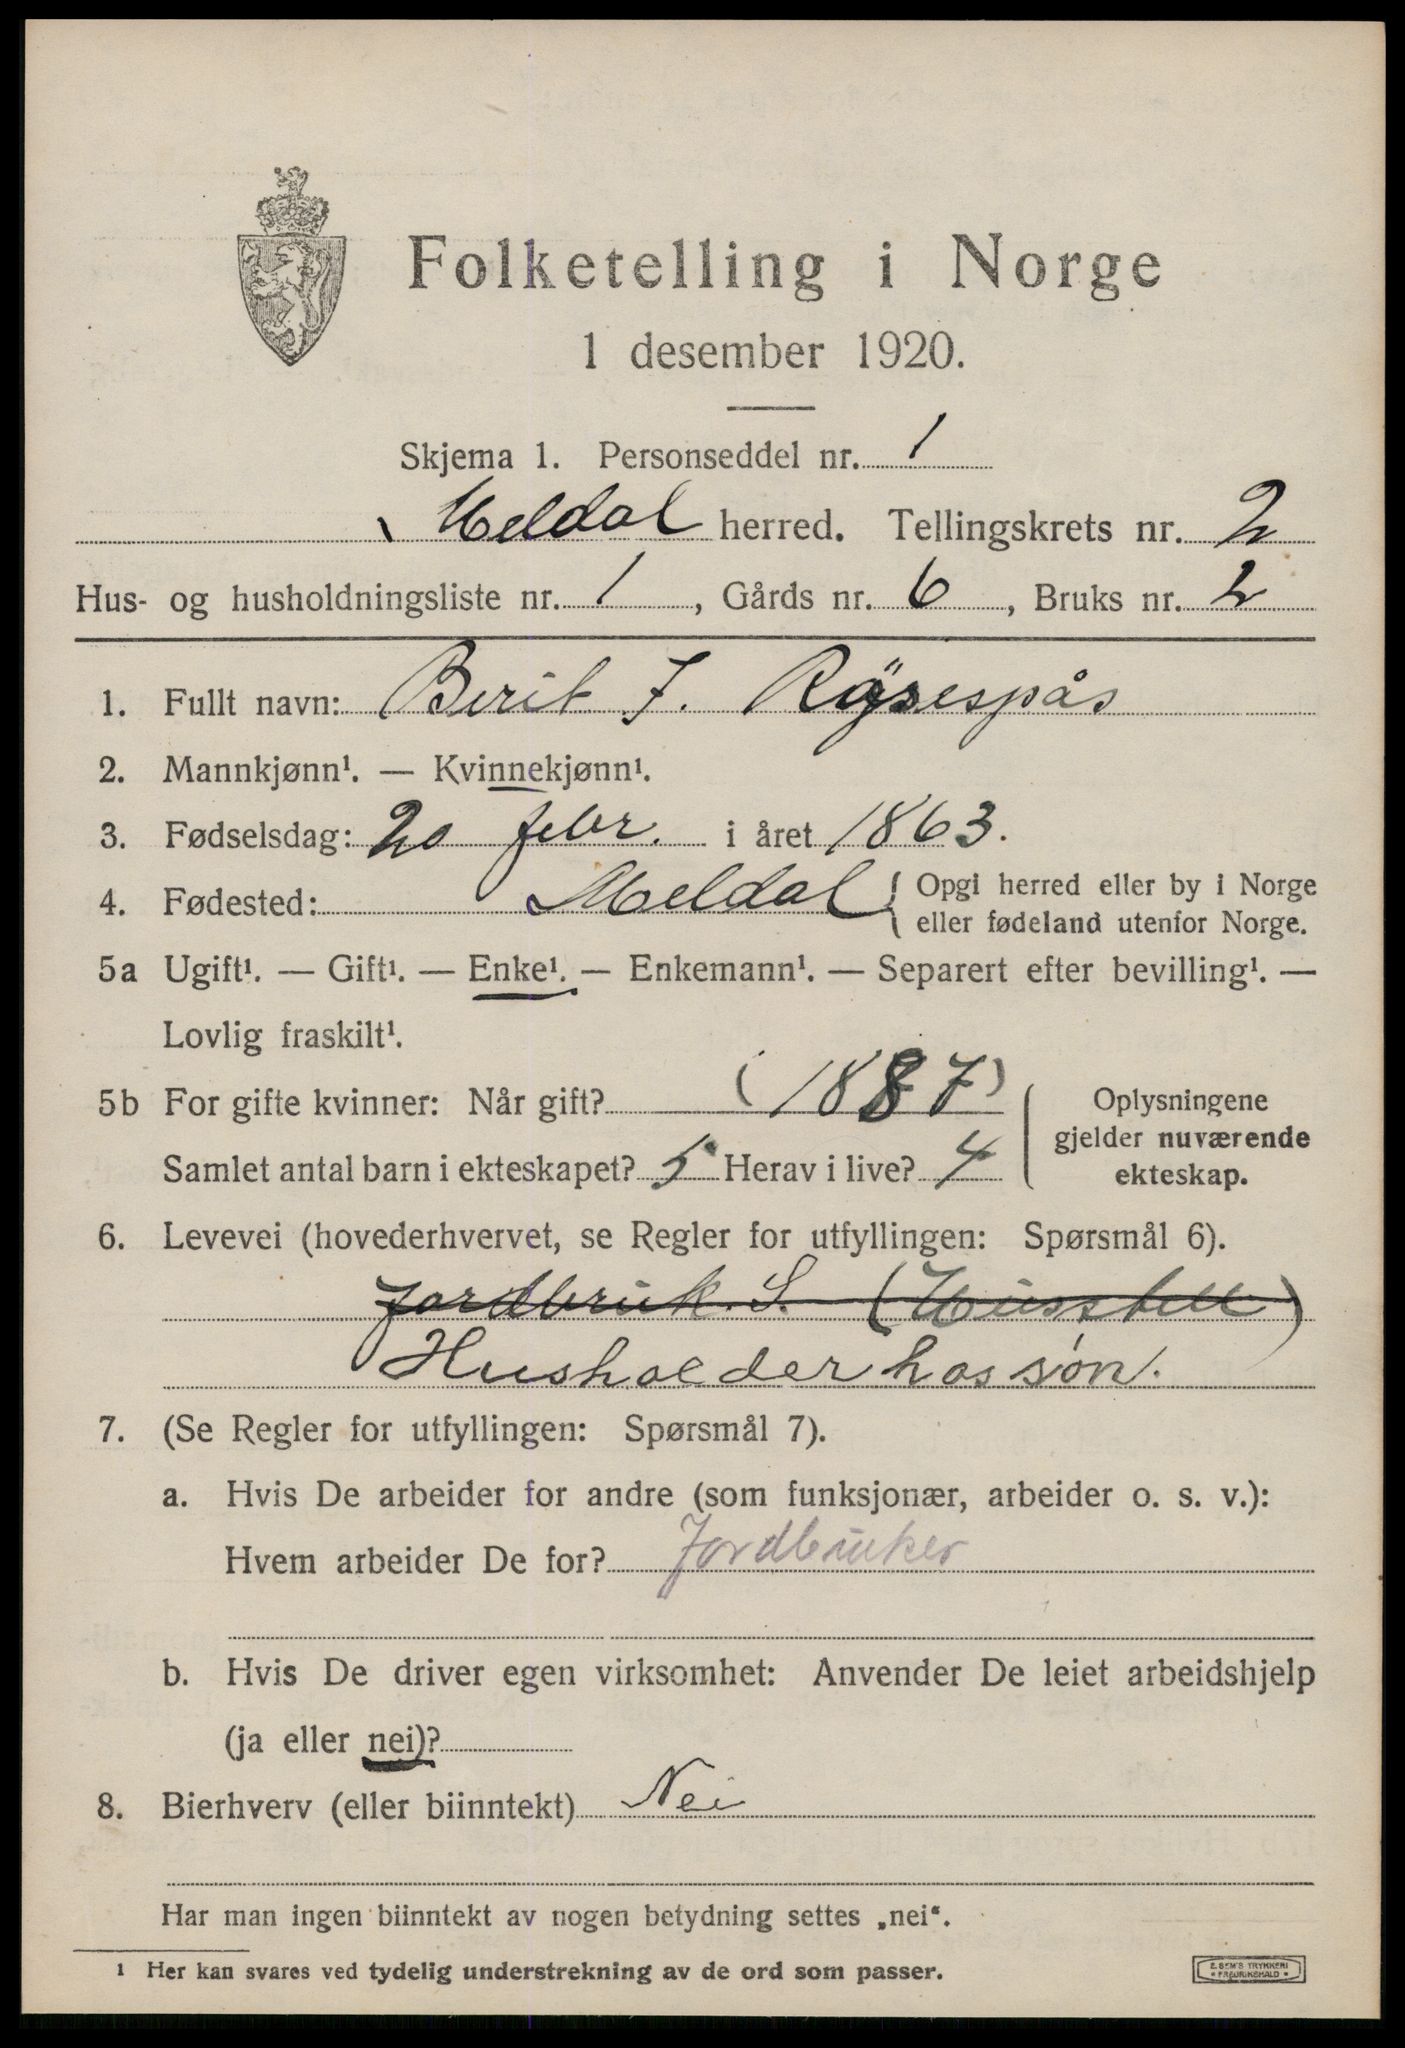 Folketelling i Norge
1 desember 1920.
Skjema 1. Personseddel nr. 1
Meldal herred. Tellingskrets nr. 2
Hus- og husholdningsliste nr. 1, Gårds nr. 6, Bruks nr. 2
1. Fullt navn: Berit J. Rösespås
2. Mannkjønn¹. — Kvinnekjønn¹.
3. Fødselsdag: 20 febr. i året 1863.
4. Fødested: Meldal { Opgi herred eller by i Norge
eller fødeland utenfor Norge.
5a Ugift¹. — Gift¹. — Enke¹. — Enkemann¹. — Separert efter bevilling¹. —
Lovlig fraskilt¹.
5b For gifte kvinner: Når gift? (1887)
Samlet antal barn i ekteskapet? 5 Herav i live? 4
Oplysningene
gjelder nuværende
ekteskap.
6. Levevei (hovederhvervet, se Regler for utfyllingen: Spørsmål 6).
Jordbruk. S. (Husstell)
Husholder hos søn.
7. (Se Regler for utfyllingen: Spørsmål 7).
a. Hvis De arbeider for andre (som funksjonær, arbeider o. s. v.):
Hvem arbeider De for? Jordbruker
b. Hvis De driver egen virksomhet: Anvender De leiet arbeidshjelp
(ja eller nei)?
8. Bierhverv (eller biinntekt) Nei
Har man ingen biinntekt av nogen betydning settes „nei“.
¹ Her kan svares ved tydelig understrekning av de ord som passer.
E. SEM'S TRYKKERI
* FREDRIKSHALD *